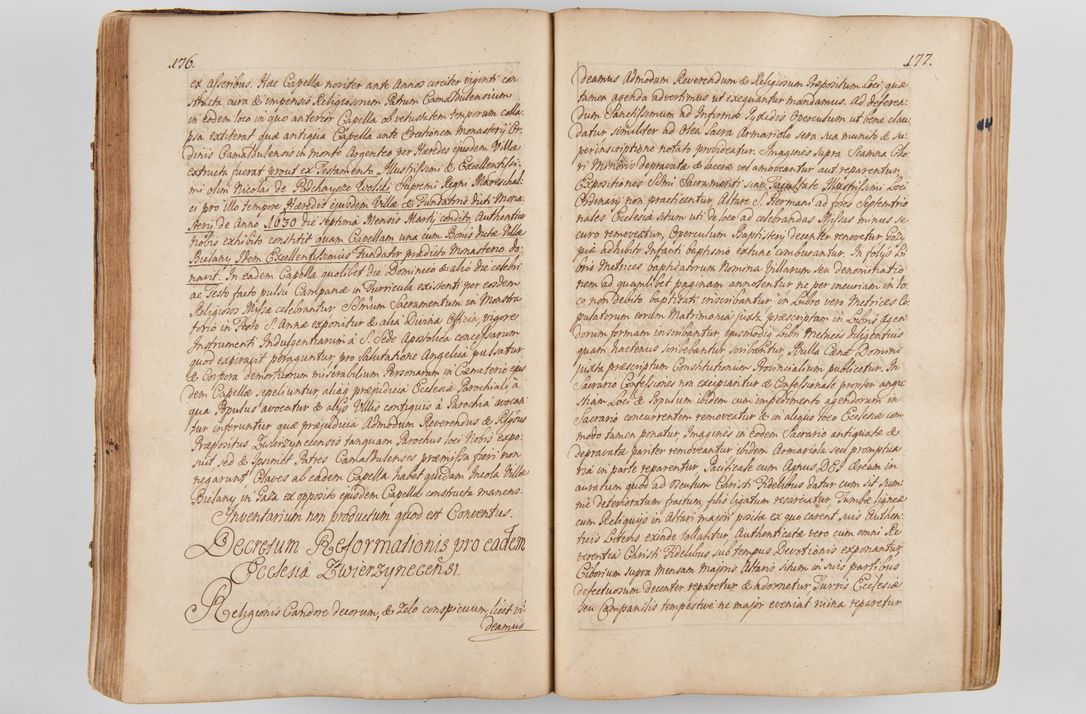 176.
ex asseribus. Hæc Capella noviter ante Annos circiter viginti con
structa cura & impensis Religiosorum Patrum Camaldulensium
in eodem loco in quo anterior Capella ob vetustatem temporum colla-
psa extiterat quæ antiqua Capella ante Erectionem Monasterij Or-
dinis Camaldulensis in monte Argenteo per Hæredes ejusdem Villæ
extructa fuerat prout ex Testamento Illustrissimi & Excellentissi-
mi olim Nicolai de Podhayce Wolski Supremi Regni Mareschal-
ci pro illo tempore Hæredis ejusdem Villæ & Fundatoris dicti Mona-
sterij de Anno 1630 die Septima Mensis Martij condito Authentice
Nobis exhibito constitit quam Capellam una cum Bonis dictæ Villæ
Bielany Idem Excellentissimus Fundator prædicto Monasterio do-
navit. In eadem Capella qualibet die Dominico & alio die celebri
ac Festo facto pulsu Campanæ in Turricula existenti per eosdem
Religiosos Missæ celebrantur Sanctissimum Sacramentum in Monstra
torio in Festo S. Annæ exponitur & alia Divina Officia, vigore
Instrumenti Indulgentiarum à S. Sede Apostolica concessarum
quod expiravit peraguntur, pro Salutatione Angelica pulsatur
& Corpora demortuorum miserabilium Personarum in Cæmeterio ejus
dem Capellæ sepeliuntur, aliàs præjudicia Ecclesiæ Parochiali à
qua Populus avocatur & alijs Villis contiguis à Parochia avocan
tur inferuntur quæ præjudicia Admodum Reverendus & Rlgsus
Præpositus Zwierzynecensis tanquam Parochus loci Nobis expo-
suit sed & Ipsimet Patres Camaldulenses præmissa fieri non
negarunt Claves ab eadem Capella habet quidam Incola Villæ
Bielany in Casa ex opposito ejusdem Capellæ constructa manens.
Inventarium non productum quod est Conventus.
Decretum Reformationis pro eadem
Ecclesia Zwierzynecensi.
Religionis Candore decorum, & Zelo conspicuum, licet vi-
deamus
177.
deamus Admodum Reverendum & Religiosum Præpositum Loci quæ
tamen agenda advertimus ut exequantur mandamus Ad deferen-
dum Sanctissimum ad Infirmos Pyxidis Operculum ut bene clau-
datur similiter ad Olea Sacra Armariolo sera sua munito & su-
perinscriptione notato provideatur. Imagines supra Scamna Cho-
ri Minoris depravatæ & laceræ vel amoveantur aut reparentur.
Expositiones Sstmi Sacramenti sine Facultate Illustrissimi Loci
Ordinarij non practicentur, Altare S. Hermani ad fores Septentrio
nales Ecclesiæ situm uti de loco ad celebrandas Missas minus se
curo removeatur, Operculum Baptisterij decenter renovetur
adhibito Infanti baptismo extunc comburantur. In folijs Li-
bris Metrices baptisatorum Nomina Villarum seu denominatio
nem ad quamlibet paginam annotentur ne per incuriam in lo-
co non debito baptisati inscribantur, in Libro vero Metrices Co-
pulatorum eorum Matrimonia juxta præscriptam in Libris Agen-
dorum formam inscribantur, ejusmodi Libri Metrices diligentius
quam hactenus scribebantur scribantur, Bulla Cænæ Domini
juxta præscriptum Constitutionum Provincialium publicetur. In
Sacrario Confessiones non excipiantur & Confessionale propter angu
stiam Loci & Populum ibidem cum impedimento agendorum in
Sacrario concurrentem removeatur & in aliquo loco Ecclesiæ com
modo tamen ponatur, Imagines in eodem Sacrario antiquatæ &
depravatæ pariter removeantur ibidem Armariola seu promptua
ria in parte reparentur. Pacificale cum Agnus DEI Æreum in-
auratum quod ad osculum Christi Fidelibus datur cum sit sum-
mè deterioratum fractum filis ligatum resarciatur, Tumbæ ligneæ
cum Reliquijs in Altari majori posita ex quo carent suis Authen-
ticis Literis exinde tollantur, Authenticatæ vero cum omni Re-
verentia Christi Fidelibus sub tempus Devotionis exponantur,
Ciborium supra Mensam Majoris Altaris situm in suis partibus
defectuosum decenter reparetur & adornetur Turris Ecclesiæ
seu Campanilis tempestive ne major eveniat ruina reparetur